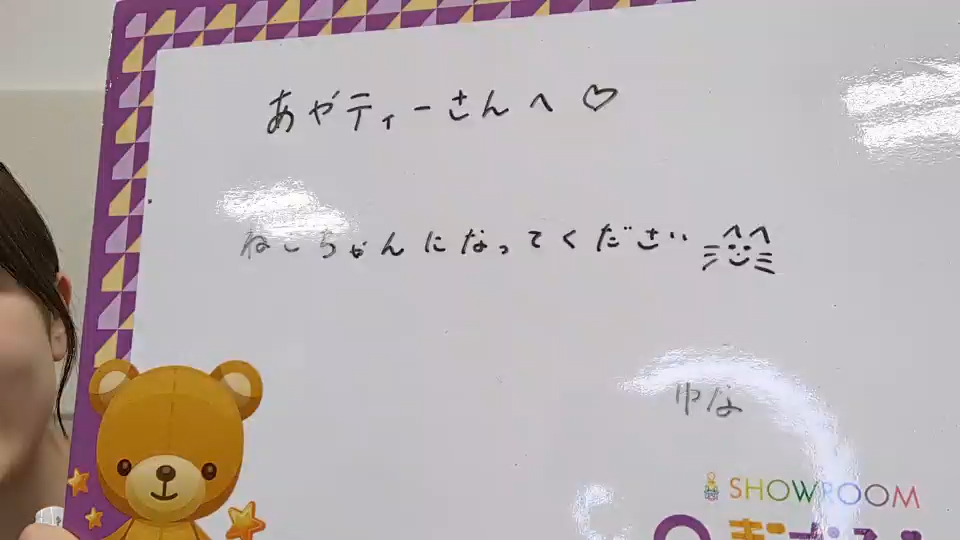 あやティーさんへ♡
ねこちゃんになってください
ゆな
SHOWROOM